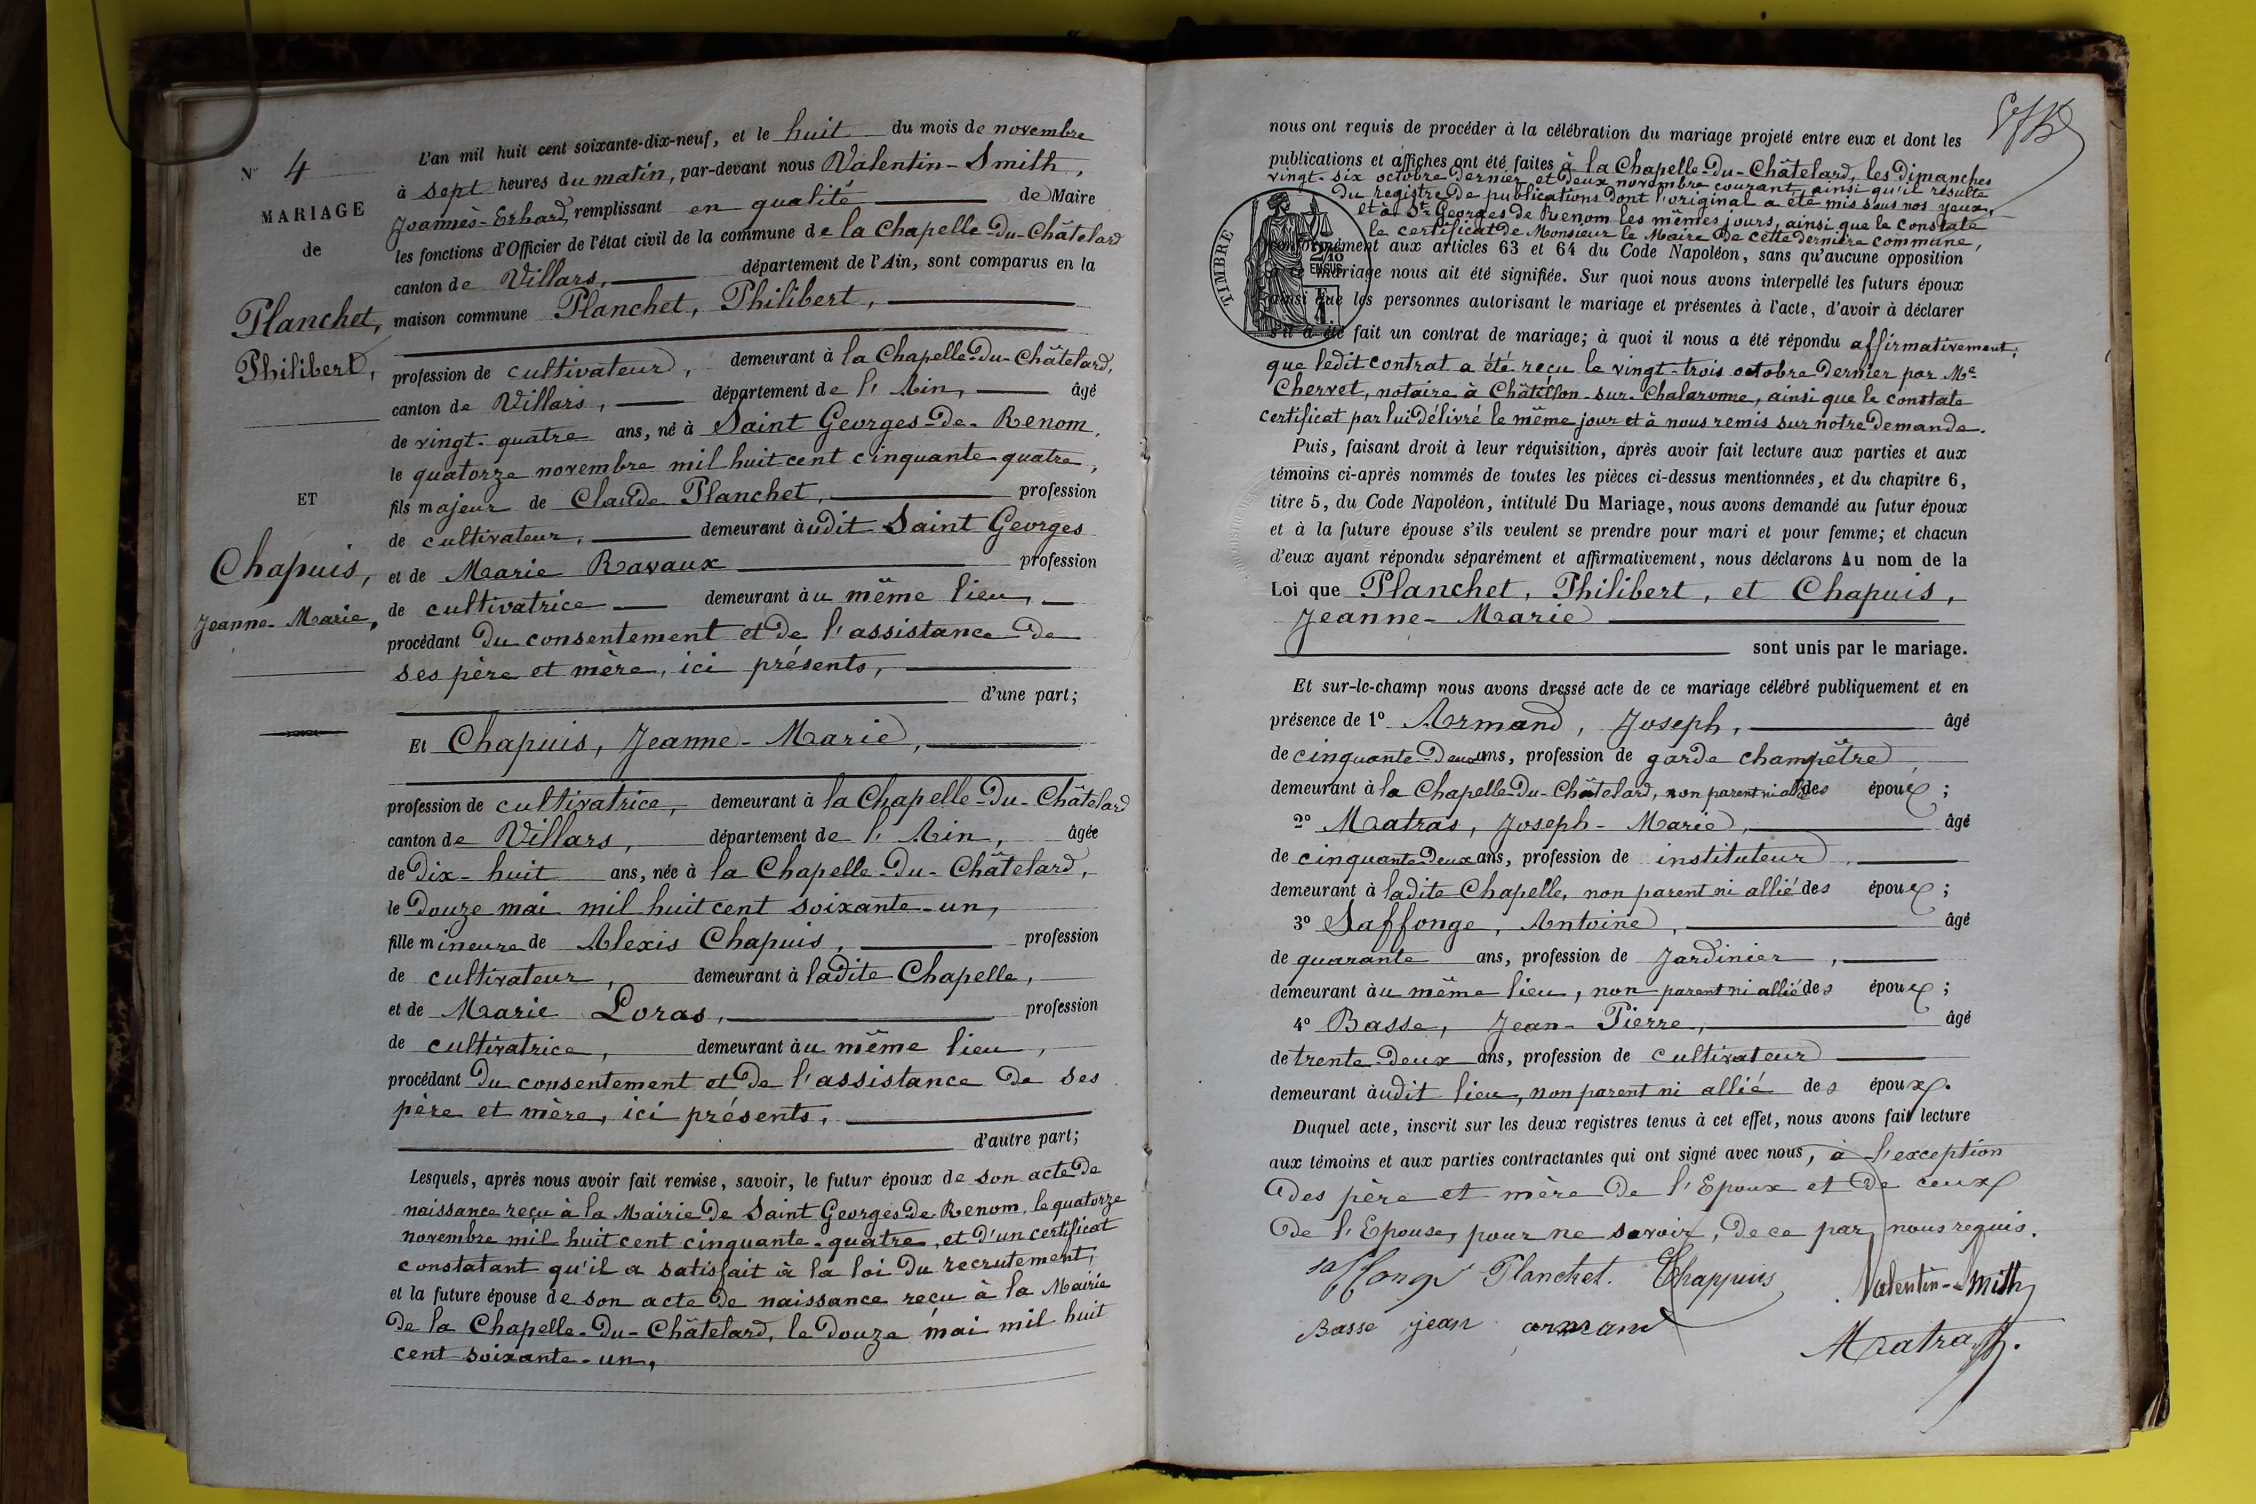 N° 4
MARIAGE
de
Planchet,
Philibert,
ET
Chapuis,
Jeanne-Marie,
L'an mil huit cent soixante-dix-neuf, et le huit du mois de novembre
à sept heures du matin, par-devant nous Valentin-Smith,
Joannès-Erhard, remplissant en qualité de Maire
les fonctions d'Officier de l'état civil de la commune de la Chapelle-du-Châtelard
canton de Villars, département de l'Ain, sont comparus en la
maison commune Planchet, Philibert,
profession de cultivateur, demeurant à la Chapelle-du-Châtelard,
canton de Villars, département de l'Ain, âgé
de vingt-quatre ans, né à Saint Georges-de-Renom,
le quatorze novembre mil huit cent cinquante-quatre,
fils majeur de Claude Planchet, profession
de cultivateur, demeurant audit Saint Georges
et de Marie Ravaux profession
de cultivatrice demeurant au même lieu,
procédant du consentement et de l'assistance de
ses père et mère, ici présents,
d'une part;
Et Chapuis, Jeanne-Marie,
profession de cultivatrice, demeurant à la Chapelle-du-Châtelard
canton de Villars, département de l'Ain, âgée
de dix-huit ans, née à la Chapelle-du-Châtelard,
le douze mai mil huit cent soixante-un,
fille mineure de Alexis Chapuis, profession
de cultivateur, demeurant à ladite Chapelle,
et de Marie Loras, profession
de cultivatrice, demeurant au même lieu,
procédant du consentement et de l'assistance de ses
père et mère, ici présents,
d'autre part;
Lesquels, après nous avoir fait remise, savoir, le futur époux de son acte de
naissance reçu à la Mairie de Saint Georges de Renom, le quatorze
novembre mil huit cent cinquante-quatre, et d'un certificat
constatant qu'il a satisfait à la loi du recrutement;
et la future épouse de son acte de naissance reçu à la Mairie
de la Chapelle-du-Châtelard, le douze mai mil huit
cent soixante-un,
nous ont requis de procéder à la célébration du mariage projeté entre eux et dont les
publications et affiches ont été faites à la Chapelle-du-Châtelard, les dimanches
vingt-six octobre dernier et deux novembre courant, ainsi qu'il résulte
du registre de publications dont l'original a été mis sous nos yeux,
et à St Georges de Renom les mêmes jours, ainsi que le constate
le certificat de Monsieur le Maire de cette dernière commune,
conformément aux articles 63 et 64 du Code Napoléon, sans qu'aucune opposition
à ce mariage nous ait été signifiée. Sur quoi nous avons interpellé les futurs époux
ainsi que les personnes autorisant le mariage et présentes à l'acte, d'avoir à déclarer
s'il a été fait un contrat de mariage; à quoi il nous a été répondu affirmativement,
que ledit contrat a été reçu le vingt-trois octobre dernier par Me
Chervet, notaire à Châtillon-sur-Chalaronne, ainsi que le constate
certificat par lui délivré le même jour et à nous remis sur notre demande.
TIMBRE
2/10
EN SUS
Puis, faisant droit à leur réquisition, après avoir fait lecture aux parties et aux
témoins ci-après nommés de toutes les pièces ci-dessus mentionnées, et du chapitre 6,
titre 5, du Code Napoléon, intitulé Du Mariage, nous avons demandé au futur époux
et à la future épouse s'ils veulent se prendre pour mari et pour femme; et chacun
d'eux ayant répondu séparément et affirmativement, nous déclarons Au nom de la
Loi que Planchet, Philibert, et Chapuis,
Jeanne-Marie
sont unis par le mariage.
Et sur-le-champ nous avons dressé acte de ce mariage célébré publiquement et en
présence de 1° Armand, Joseph, âgé
de cinquante-deux ans, profession de garde champêtre
demeurant à la Chapelle-du-Châtelard, non parent ni allié des époux;
2° Matras, Joseph-Marie, âgé
de cinquante-deux ans, profession de instituteur,
demeurant à ladite Chapelle, non parent ni allié des époux;
3° Saffonge, Antoine, âgé
de quarante ans, profession de Jardinier,
demeurant au même lieu, non parent ni allié des époux;
4° Basse, Jean-Pierre, âgé
de trente-deux ans, profession de cultivateur
demeurant audit lieu, non parent ni allié des époux.
Duquel acte, inscrit sur les deux registres tenus à cet effet, nous avons fait lecture
aux témoins et aux parties contractantes qui ont signé avec nous, à l'exception
des père et mère de l'Epoux et de ceux
de l'Epouse, pour ne savoir, de ce par nous requis.
Saffonge Planchet. Chappuis Valentin-Smith
Basse jean armand Matras